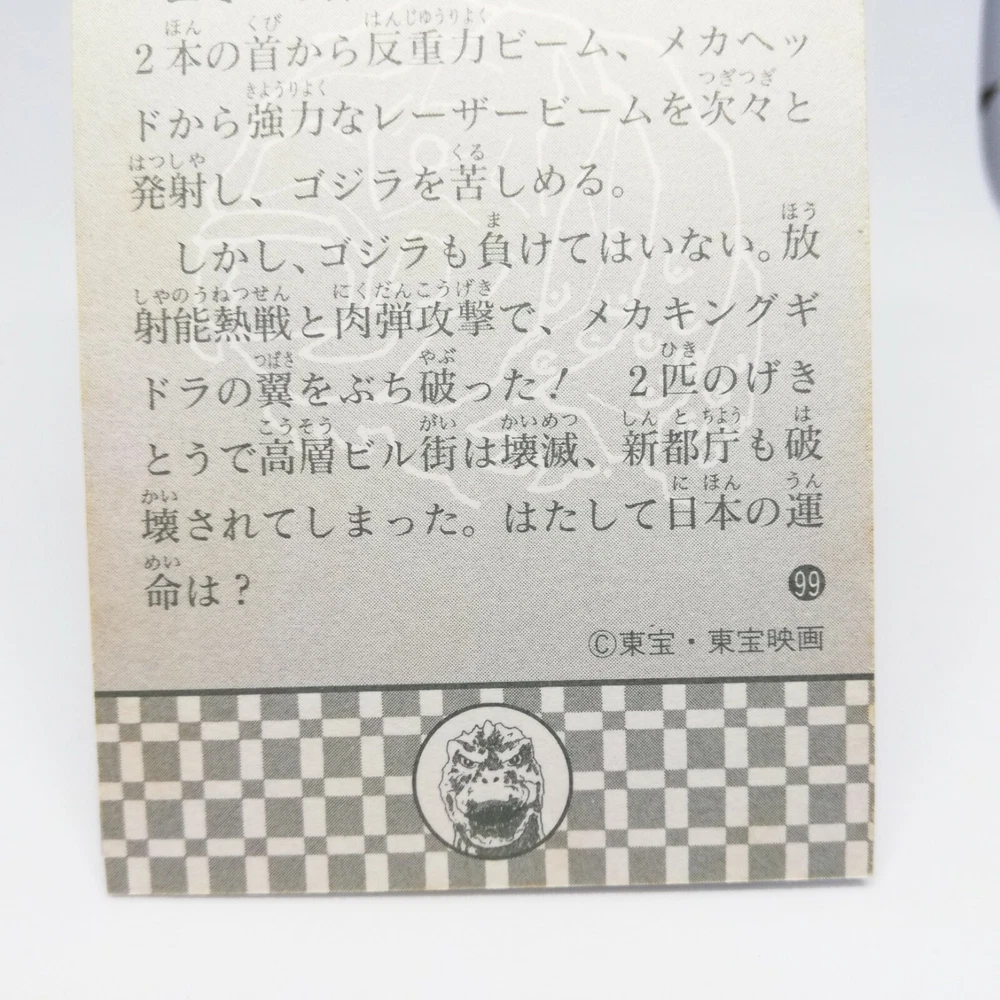 2本の首から反重力ビーム、メカヘッ
ドから強力なレーザービームを次々と
発射し、ゴジラを苦しめる。
しかし、ゴジラも負けてはいない。放
射能熱戦と肉弾攻撃で、メカキングギ
ドラの翼をぶち破った! 2匹のげき
とうで高層ビル街は壊滅、新都庁も破
壊されてしまった。はたして日本の運
命は?
99
©東宝・東宝映画